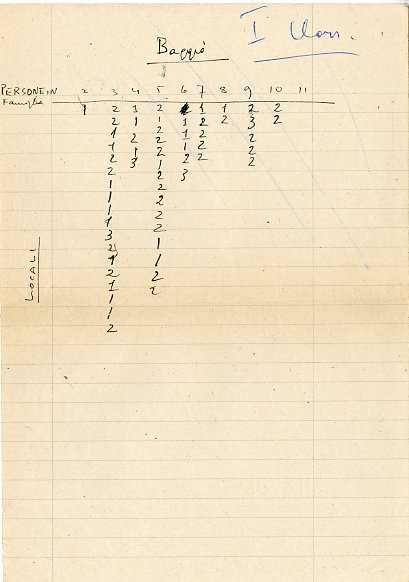 I
Baggio
PERSONE IN 2 3 4 5 6 7 8 9 10 11
Famiglia
1 2 1 2 1 1 2 2
2 1 1 1 2 2 3 2
1 2 2 1 2 2
1 1 2 1 2 2
2 3 2 2 2 2
2 1 3
1 2
1 2
1 2
1 2
3 2
2 1
1 1
2 2
1 2
1
1
2
LOCALI